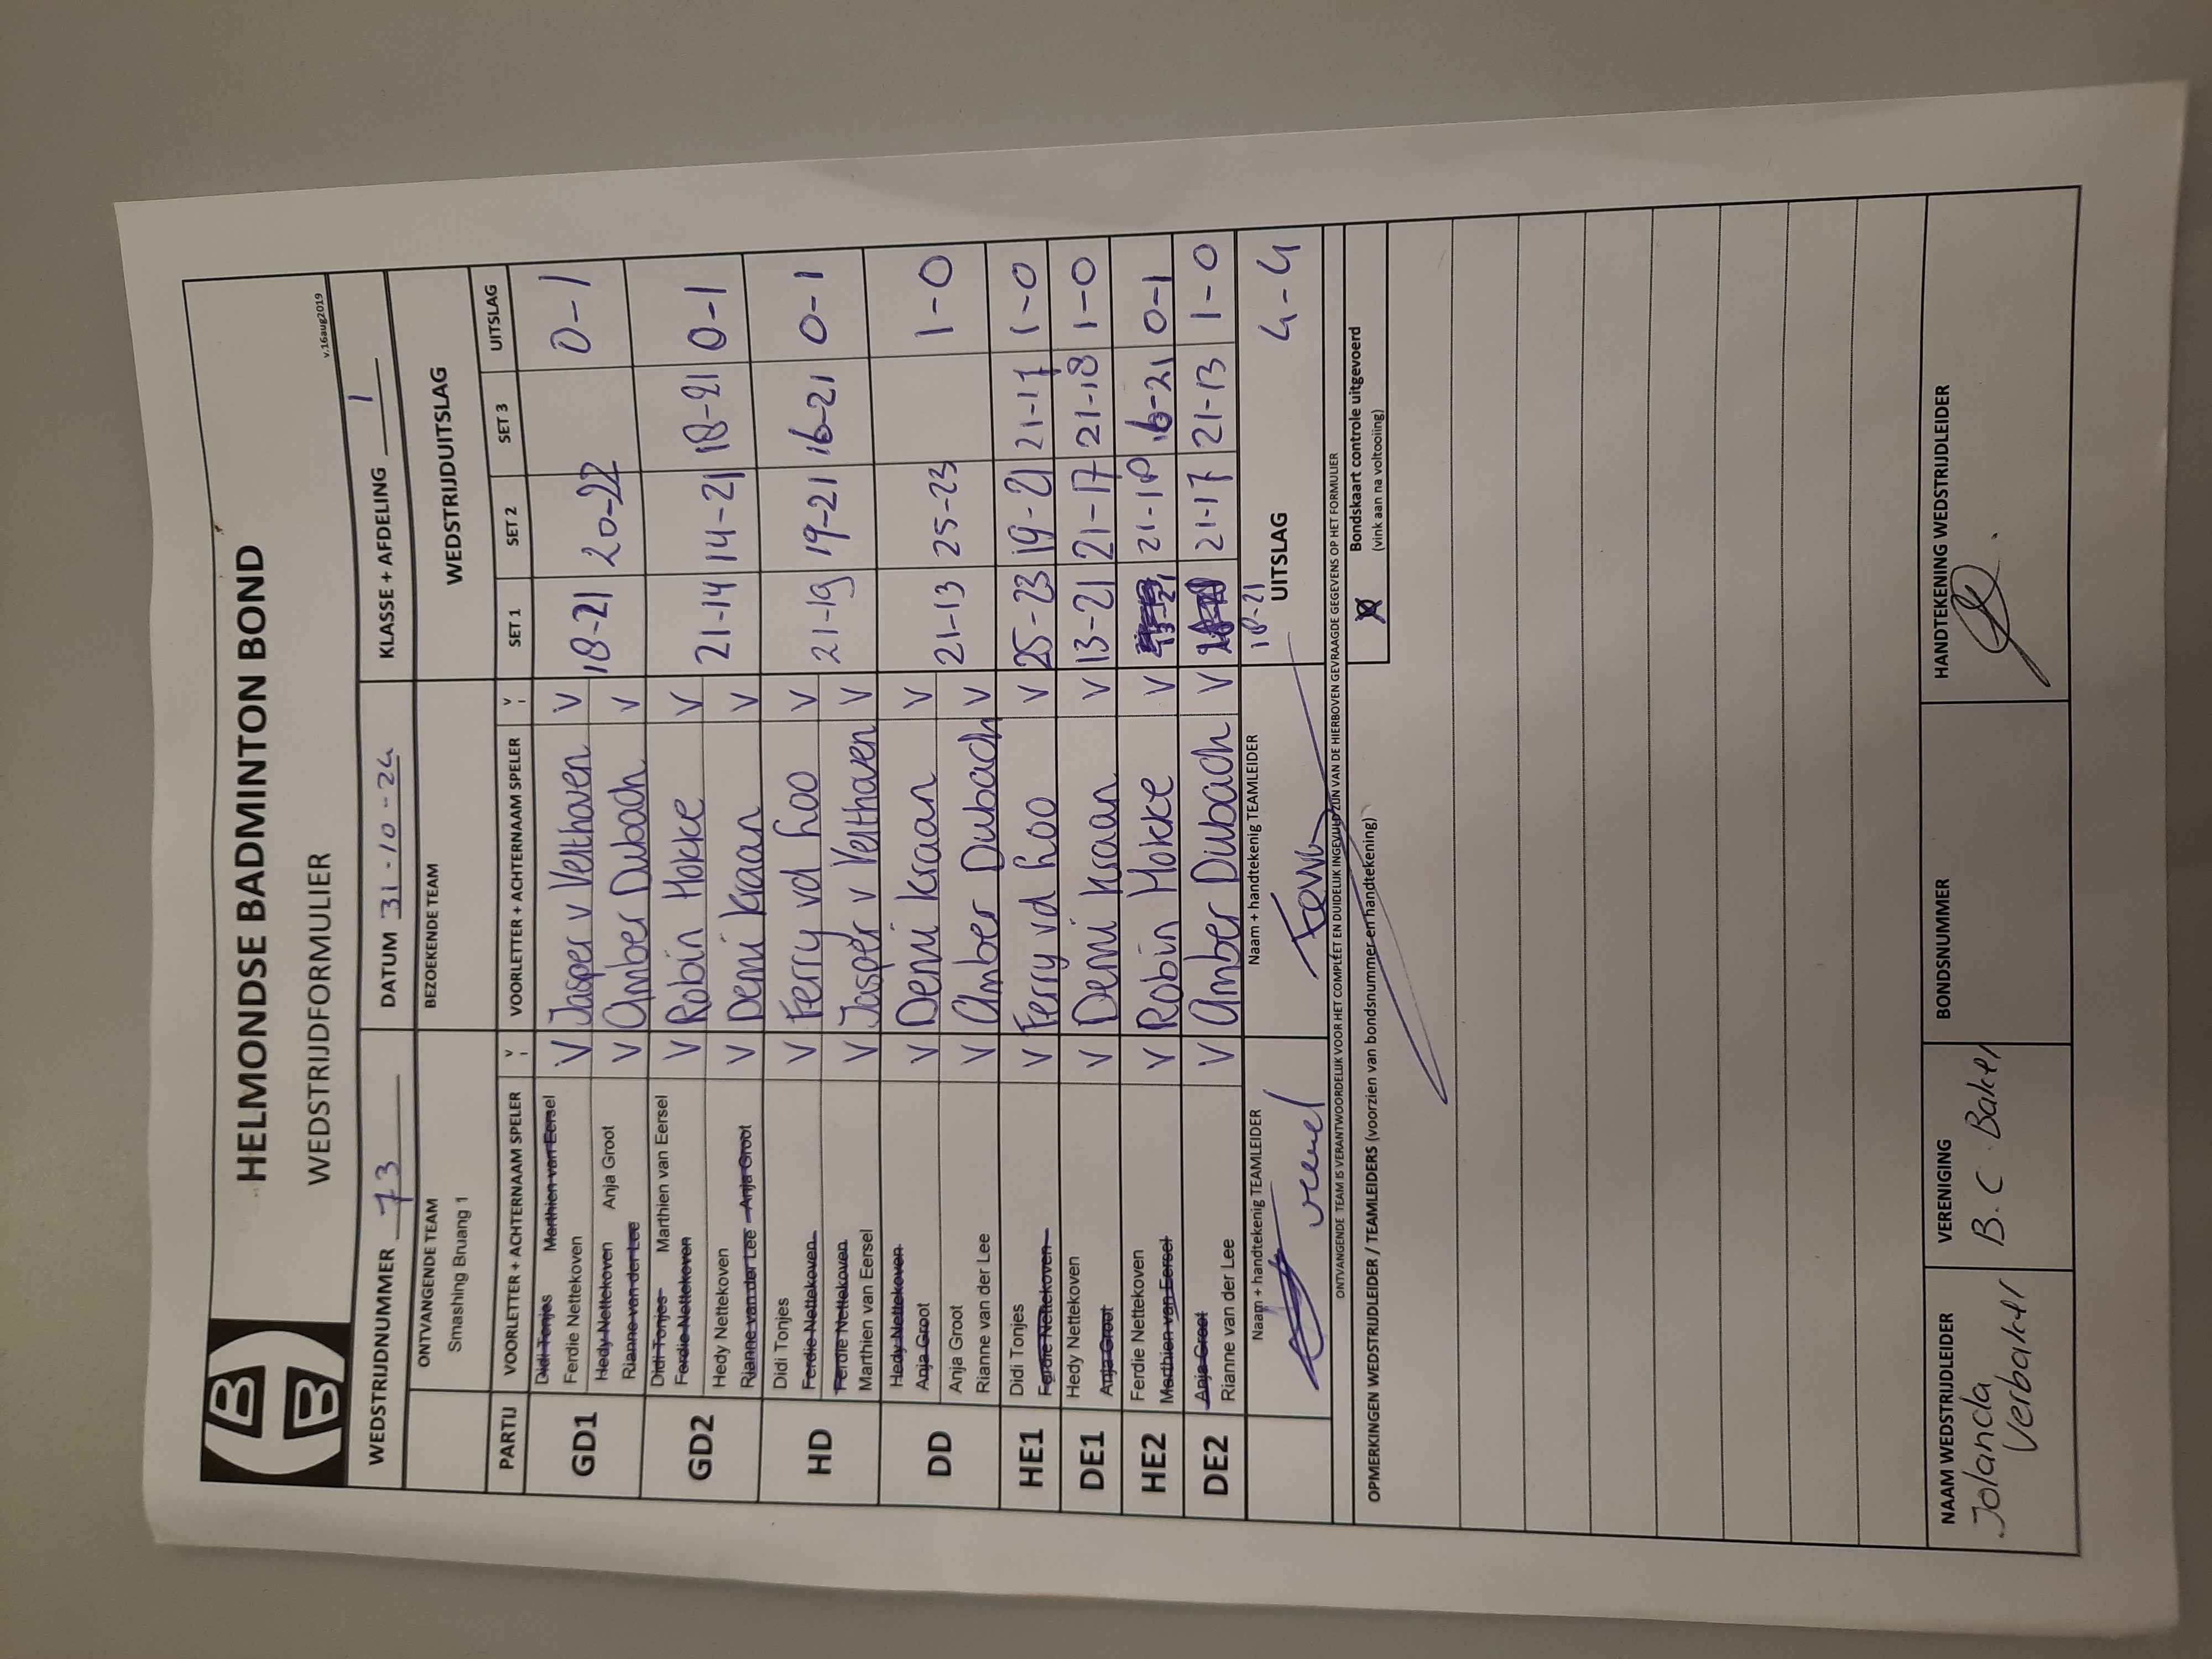 HELMONDSE BADMINTON BOND
WEDSTRIJDFORMULIER
v.16aug2019
WEDSTRIJDNUMMER 73 DATUM 31-10-24 KLASSE + AFDELING 1
ONTVANGENDE TEAM BEZOEKENDE TEAM WEDSTRIJDUITSLAG
Smashing Bruang 1
PARTIJ VOORLETTER + ACHTERNAAM SPELER V VOORLETTER + ACHTERNAAM SPELER V SET 1 SET 2 SET 3 UITSLAG
Didi Tonjes Marthien van Eersel
GD1 Ferdie Nettekoven V Jasper v Velthoven V 18-21 20-22 0-1
Hedy Nettekoven Anja Groot V Amber Dubach V
Rianne van der Lee
Didi Tonjes Marthien van Eersel
GD2 Ferdie Nettekoven V Robin Hokke V 21-14 14-21 18-21 0-1
Hedy Nettekoven V Demi Kraan V
Rianne van der Lee Anja Groot
Didi Tonjes V Ferry vd hoo V
HD Ferdie Nettekoven 21-19 19-21 16-21 0-1
Ferdie Nettekoven
Marthien van Eersel V Jasper v Velthoven V
Hedy Nettekoven
DD Anja Groot V Demi Kraan V 21-13 25-23 1-0
Anja Groot V Amber Dubach V
Rianne van der Lee
Didi Tonjes
HE1 Ferdie Nettekoven V Ferry vd hoo V 25-23 19-21 21-17 1-0
Hedy Nettekoven
DE1 Anja Groot V Demi Kraan V 13-21 21-17 21-18 1-0
Ferdie Nettekoven
HE2 Marthien van Eersel V Robin Hokke V 21-18 16-21 0-1
Anja Groot
DE2 Rianne van der Lee V Amber Dubach V 21-17 21-13 1-0
18-21
Naam + handtekenig TEAMLEIDER Naam + handtekenig TEAMLEIDER UITSLAG 4-4
ONTVANGENDE TEAM IS VERANTWOORDELIJK VOOR HET COMPLEET EN DUIDELIJK INGEVULD ZIJN VAN DE HIERBOVEN GEVRAAGDE GEGEVENS OP HET FORMULIER
OPMERKINGEN WEDSTRIJDLEIDER / TEAMLEIDERS (voorzien van bondsnummer en handtekening)
X Bondskaart controle uitgevoerd
(vink aan na voltooiing)
NAAM WEDSTRIJDLEIDER VERENIGING BONDSNUMMER HANDTEKENING WEDSTRIJDLEIDER
Jolanda B.C Bakel
Verbakel